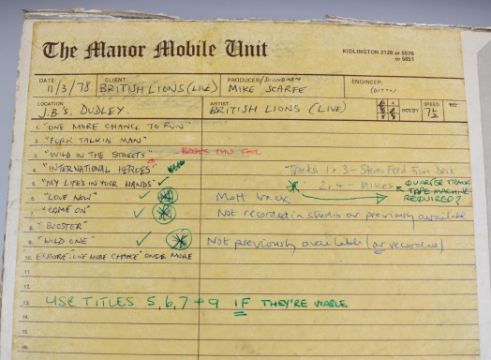 The Manor Mobile Unit
KIDLINGTON 2128 or 5576
or 5851
DATE CLIENT PRODUCER/SOUNDMEN ENGINEER
11/3/78 BRITISH LIONS (LIVE) MIKE SCARFE
LOCATION ARTIST DOLBY SPEED
J.B'S, DUDLEY. BRITISH LIONS (LIVE) 7½
1. "ONE MORE CHANCE TO RUN"
2. "FORK TALKIN MAN"
3. "WILD IN THE STREETS"
4. "INTERNATIONAL HEROES" Tracks 1+3 - Stereo Feed From Desk
5. "MY LIFES IN YOUR HANDS" ✓ * 2+4 - Mikes QUARTER TRACK
6. "LOVE NOW" ✓ * Mott TAPE MACHINE
REQUIRED?
7. "COME ON" ✓ * Not recorded in studio or previously available
8. "BOOSTER"
9. "WILD ONE" ✓ * Not previously available (or recorded)
10. ENCORE "ONE MORE CHANCE" ONCE MORE
11.
12.
13. USE TITLES 5,6,7+9 IF THEY'RE VIABLE
14.
15.
16.